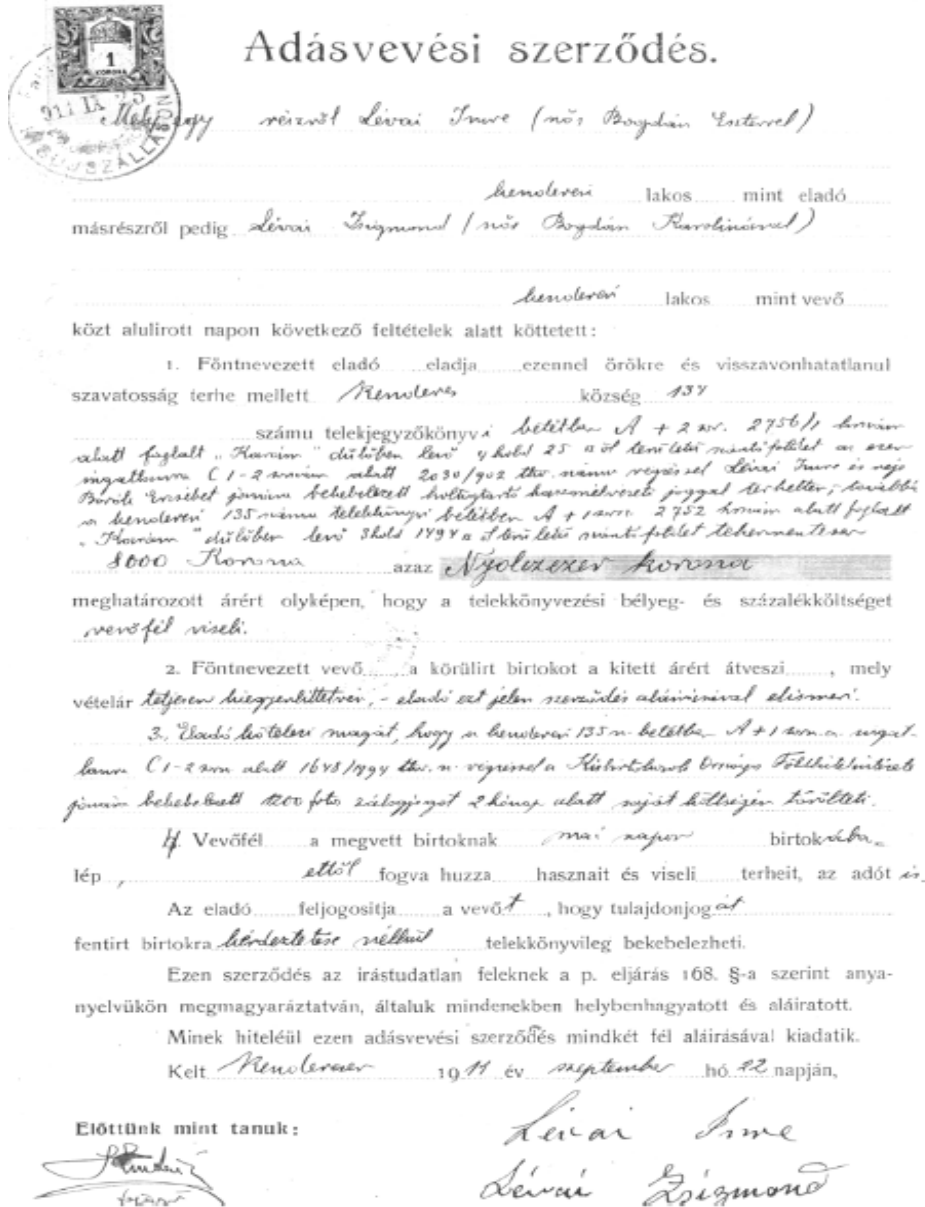 Adásvevési szerződés.
1
KORONA
911 IX 25
Mely egy részről Lévai Imre (nős Bogdán Eszterrel)
kenderesi lakos mint eladó
másrészről pedig Lévai Zsigmond (nős Bogdán Karolinával)
kenderesi lakos mint vevő
közt alulirott napon következő feltételek alatt köttetett:
1. Föntnevezett eladó eladja ezennel örökre és visszavonhatatlanul
szavatosság terhe mellett Kenderes község 134
számu telekjegyzőkönyvi betétben A + 2 sor. 2756/1 hrszám
alatt foglalt „Karám" dülőben levő 4 hold 25 □ öl területű szántóföldet az ezen
ingatlanra C 1-2 sorszám alatt 2030/902 tkv. számu végzéssel Lévai Imre és neje
Erzsébet javára bekebelezett holtigtartó haszonélvezeti joggal terhelten; továbbá
a kenderesi 135 számu telekkönyvi betétben A + 1 sor. 2752 hrszám alatt foglalt
„Karám" dülőben levő 3 hold 1494 □ öl területű szántóföldet tehermentesen
8000 Korona azaz Nyolczezer korona
meghatározott árért olyképen, hogy a telekkönyvezési bélyeg- és százalékköltséget
vevőfél viseli.
2. Föntnevezett vevő a körülirt birtokot a kitett árért átveszi , mely
vételár teljesen kiegyenlíttetvén, - eladó ezt jelen szerződés aláirásával elismeri.
3. Eladó kötelezi magát, hogy a kenderesi 135 sz. betétben A + 1 sorsz. a ingat-
lanra C 1-2 sorsz alatt 1648/1894 tkv. sz. végzéssel a Kisbirtokosok Országos Földhitelintézete
javára bekebelezett 1200 frtos zálogjogot 2 hónap alatt saját költségén törölteti.
4. Vevőfél a megvett birtoknak mai napon birtokába
lép , ettől fogva huzza hasznait és viseli terheit, az adót is
Az eladó feljogositja a vevőt , hogy tulajdonjogát
fentirt birtokra kérdeztetése nélkül telekkönyvileg bekebelezheti.
Ezen szerződés az irástudatlan feleknek a p. eljárás 168. §-a szerint anya-
nyelvükön megmagyaráztatván, általuk mindenekben helybenhagyatott és aláiratott.
Minek hiteléül ezen adásvevési szerződés mindkét fél aláirásával kiadatik.
Kelt Kenderesen 1911 év szeptember hó 22 napján,
Előttünk mint tanuk:
Lévai Imre
Lévai Zsigmond